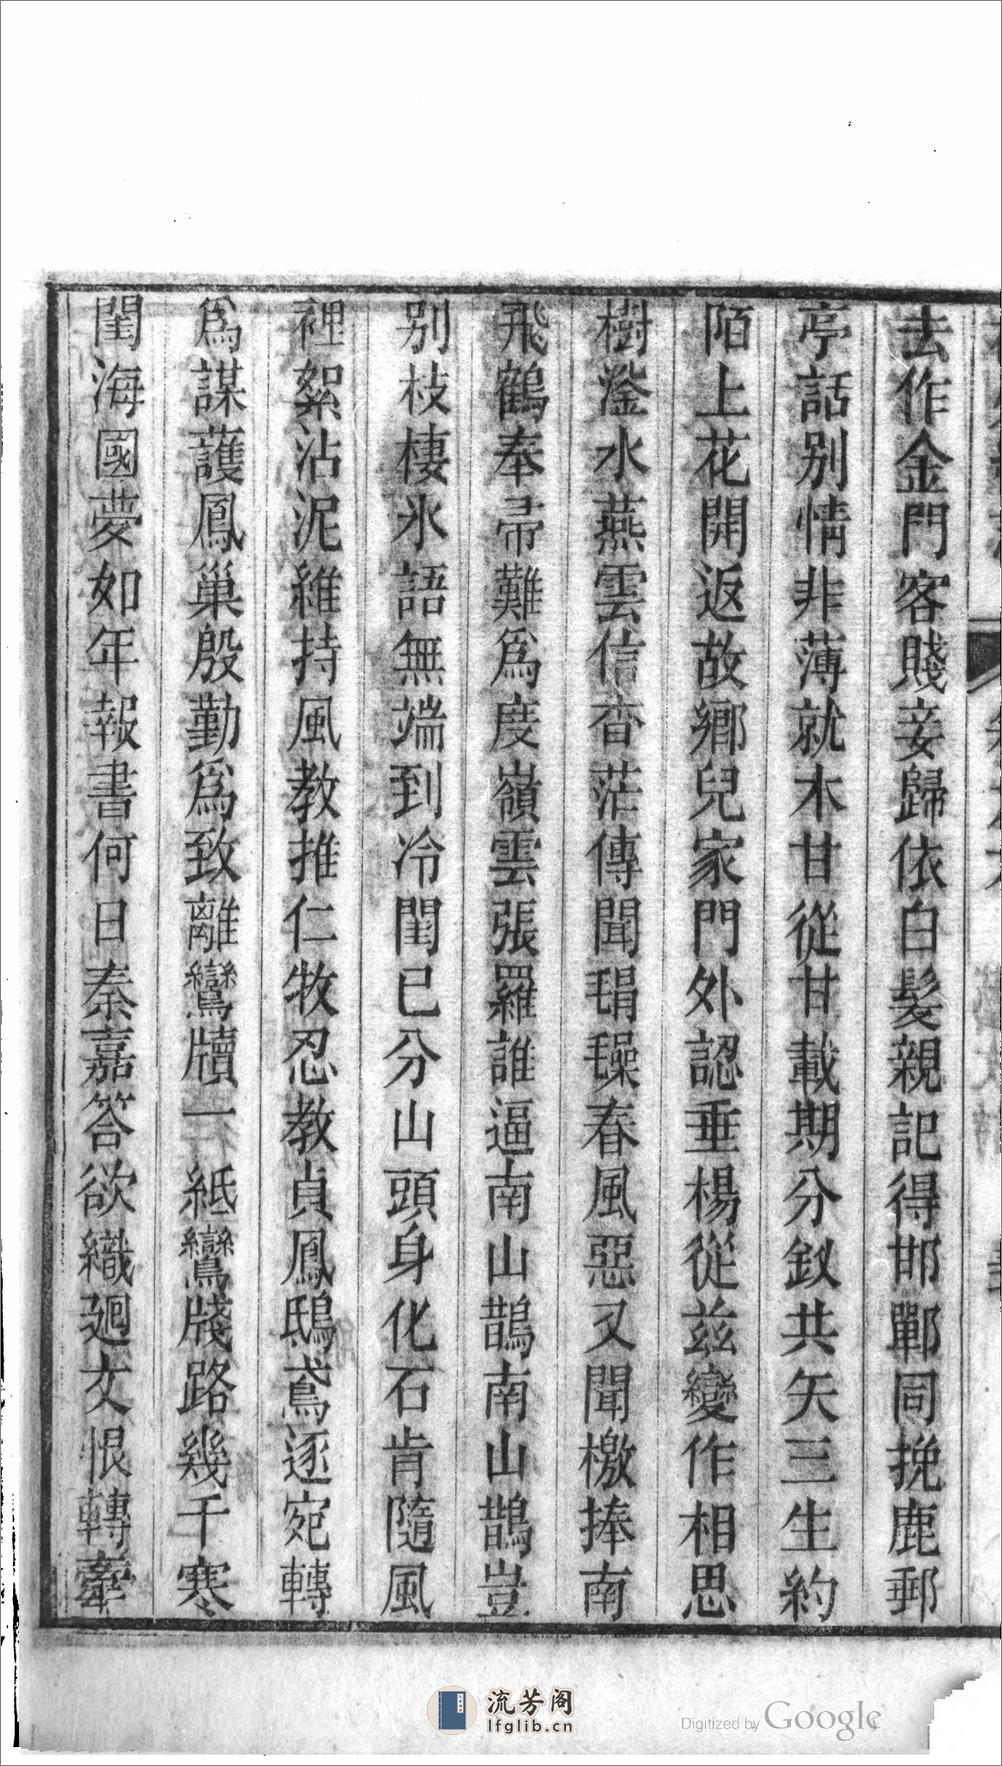 去作金門客賤妾歸依白髮親記得邯鄲同挽鹿郵
亭話别情非薄就木甘從廿載期分釵共矢三生約
陌上花開返故鄉兒家門外認垂楊從兹變作相思
樹滏水燕雲信杳茫傳聞春風惡又聞檄捧南
飛鶴奉帚難爲度嶺雲張羅誰逼南山鵲南山鵲豈
别枝棲氷語無端到冷閨已分山頭身化石肯隨風
裡絮沾泥維持風教推仁牧忍教貞鳳鴟鳶逐宛轉
爲謀護鳳巢殷勤爲致離鸞牘一紙鸞牋路幾千寒
閨海國夢如年報書何日秦嘉答欲織迴文恨轉牽
流芳阁
lfglib.cn
Digitized by Google